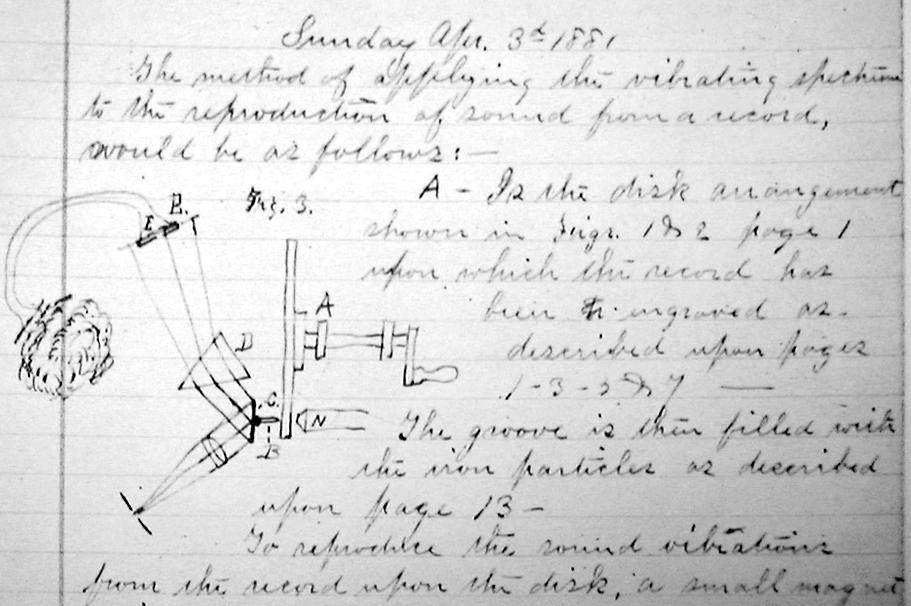 Sunday Apr. 3d 1881
The method of applying the vibrating spectrum
to the reproduction of sound from a record,
would be as follows:—
Fig. 3.
A - Is the disk arrangement
shown in Figs. 1 & 2 page 1
upon which the record has
been engraved as
described upon pages
1-3-5 & 7 —
The groove is then filled with
the iron particles as described
upon page 13 -
To reproduce the sound vibrations
from the record upon the disk, a small magnet
E B.
A
D
C.
N
B